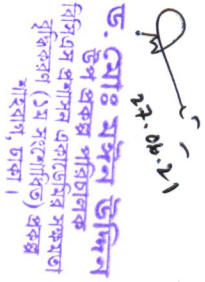 ড. মোঃ মঈন উদ্দিন
উপ প্রকল্প পরিচালক
বিসিএস প্রশাসন একাডেমির সক্ষমতা
বৃদ্ধিকরণ (১ম সংশোধিত) প্রকল্প
শাহবাগ, ঢাকা।